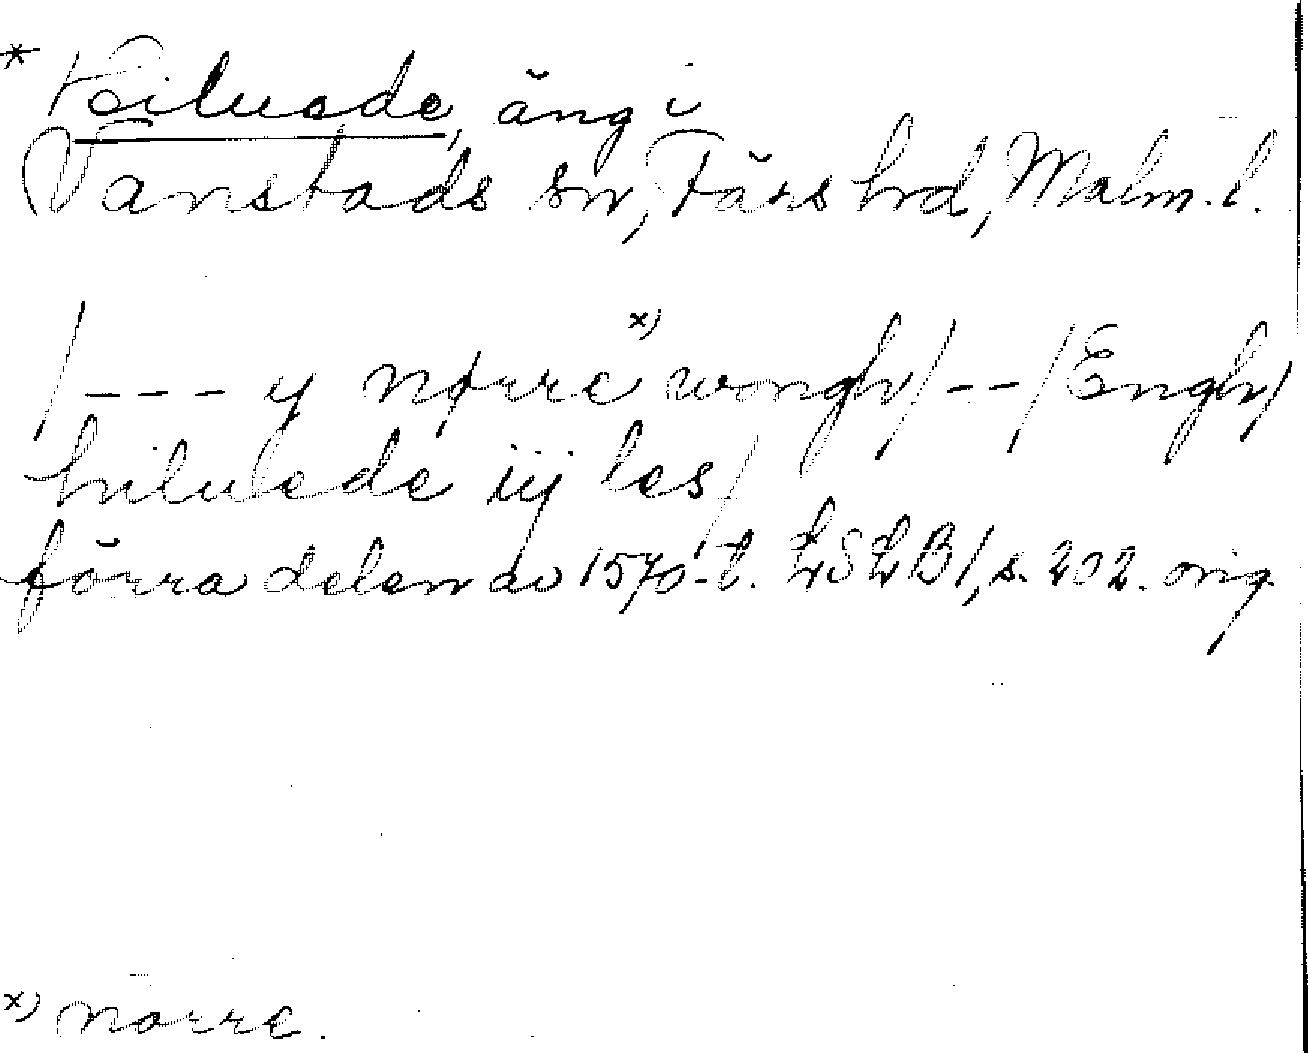 * Hiluede, äng i
Vanstads sn, Färs hrd, Malm. l.
/ - - - y nørre x) wongh/ - - / Engh/
hiluede iij les/
förra delen av 1570-t. LSLB 1, s. 202. orig.
x) norre.